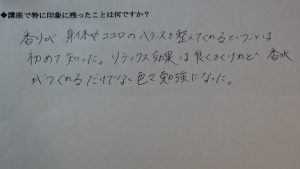 ◆講座で特に印象に残ったことは何ですか?
香りが身体やココロのバランスを整えてくれるということは
初めて知った。リラックス効果は良くきくけれど、香水
がつくれるだけでなく色々勉強になった。